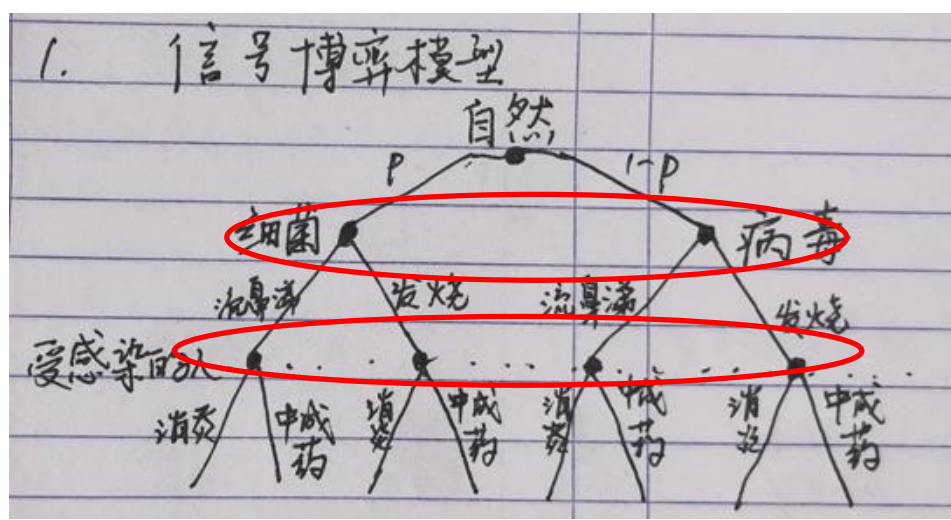 1. 信号博弈模型
自然
P 1-P
细菌 病毒
流鼻涕 发烧 流鼻涕 发烧
受感染的人
消炎 中成药 消炎 中成药 消炎 中成药 消炎 中成药